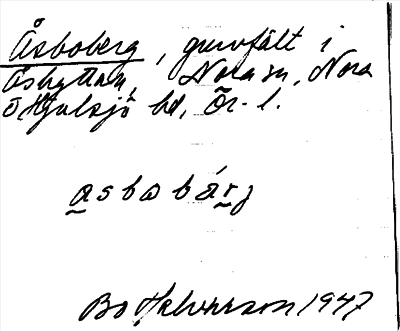 Åsboberg, gruvfält i
Åsbyttan, Nora sn, Nora
o Hjulsjö bd, Ör. l.
asbobárj
Bo Halvarsson 1947